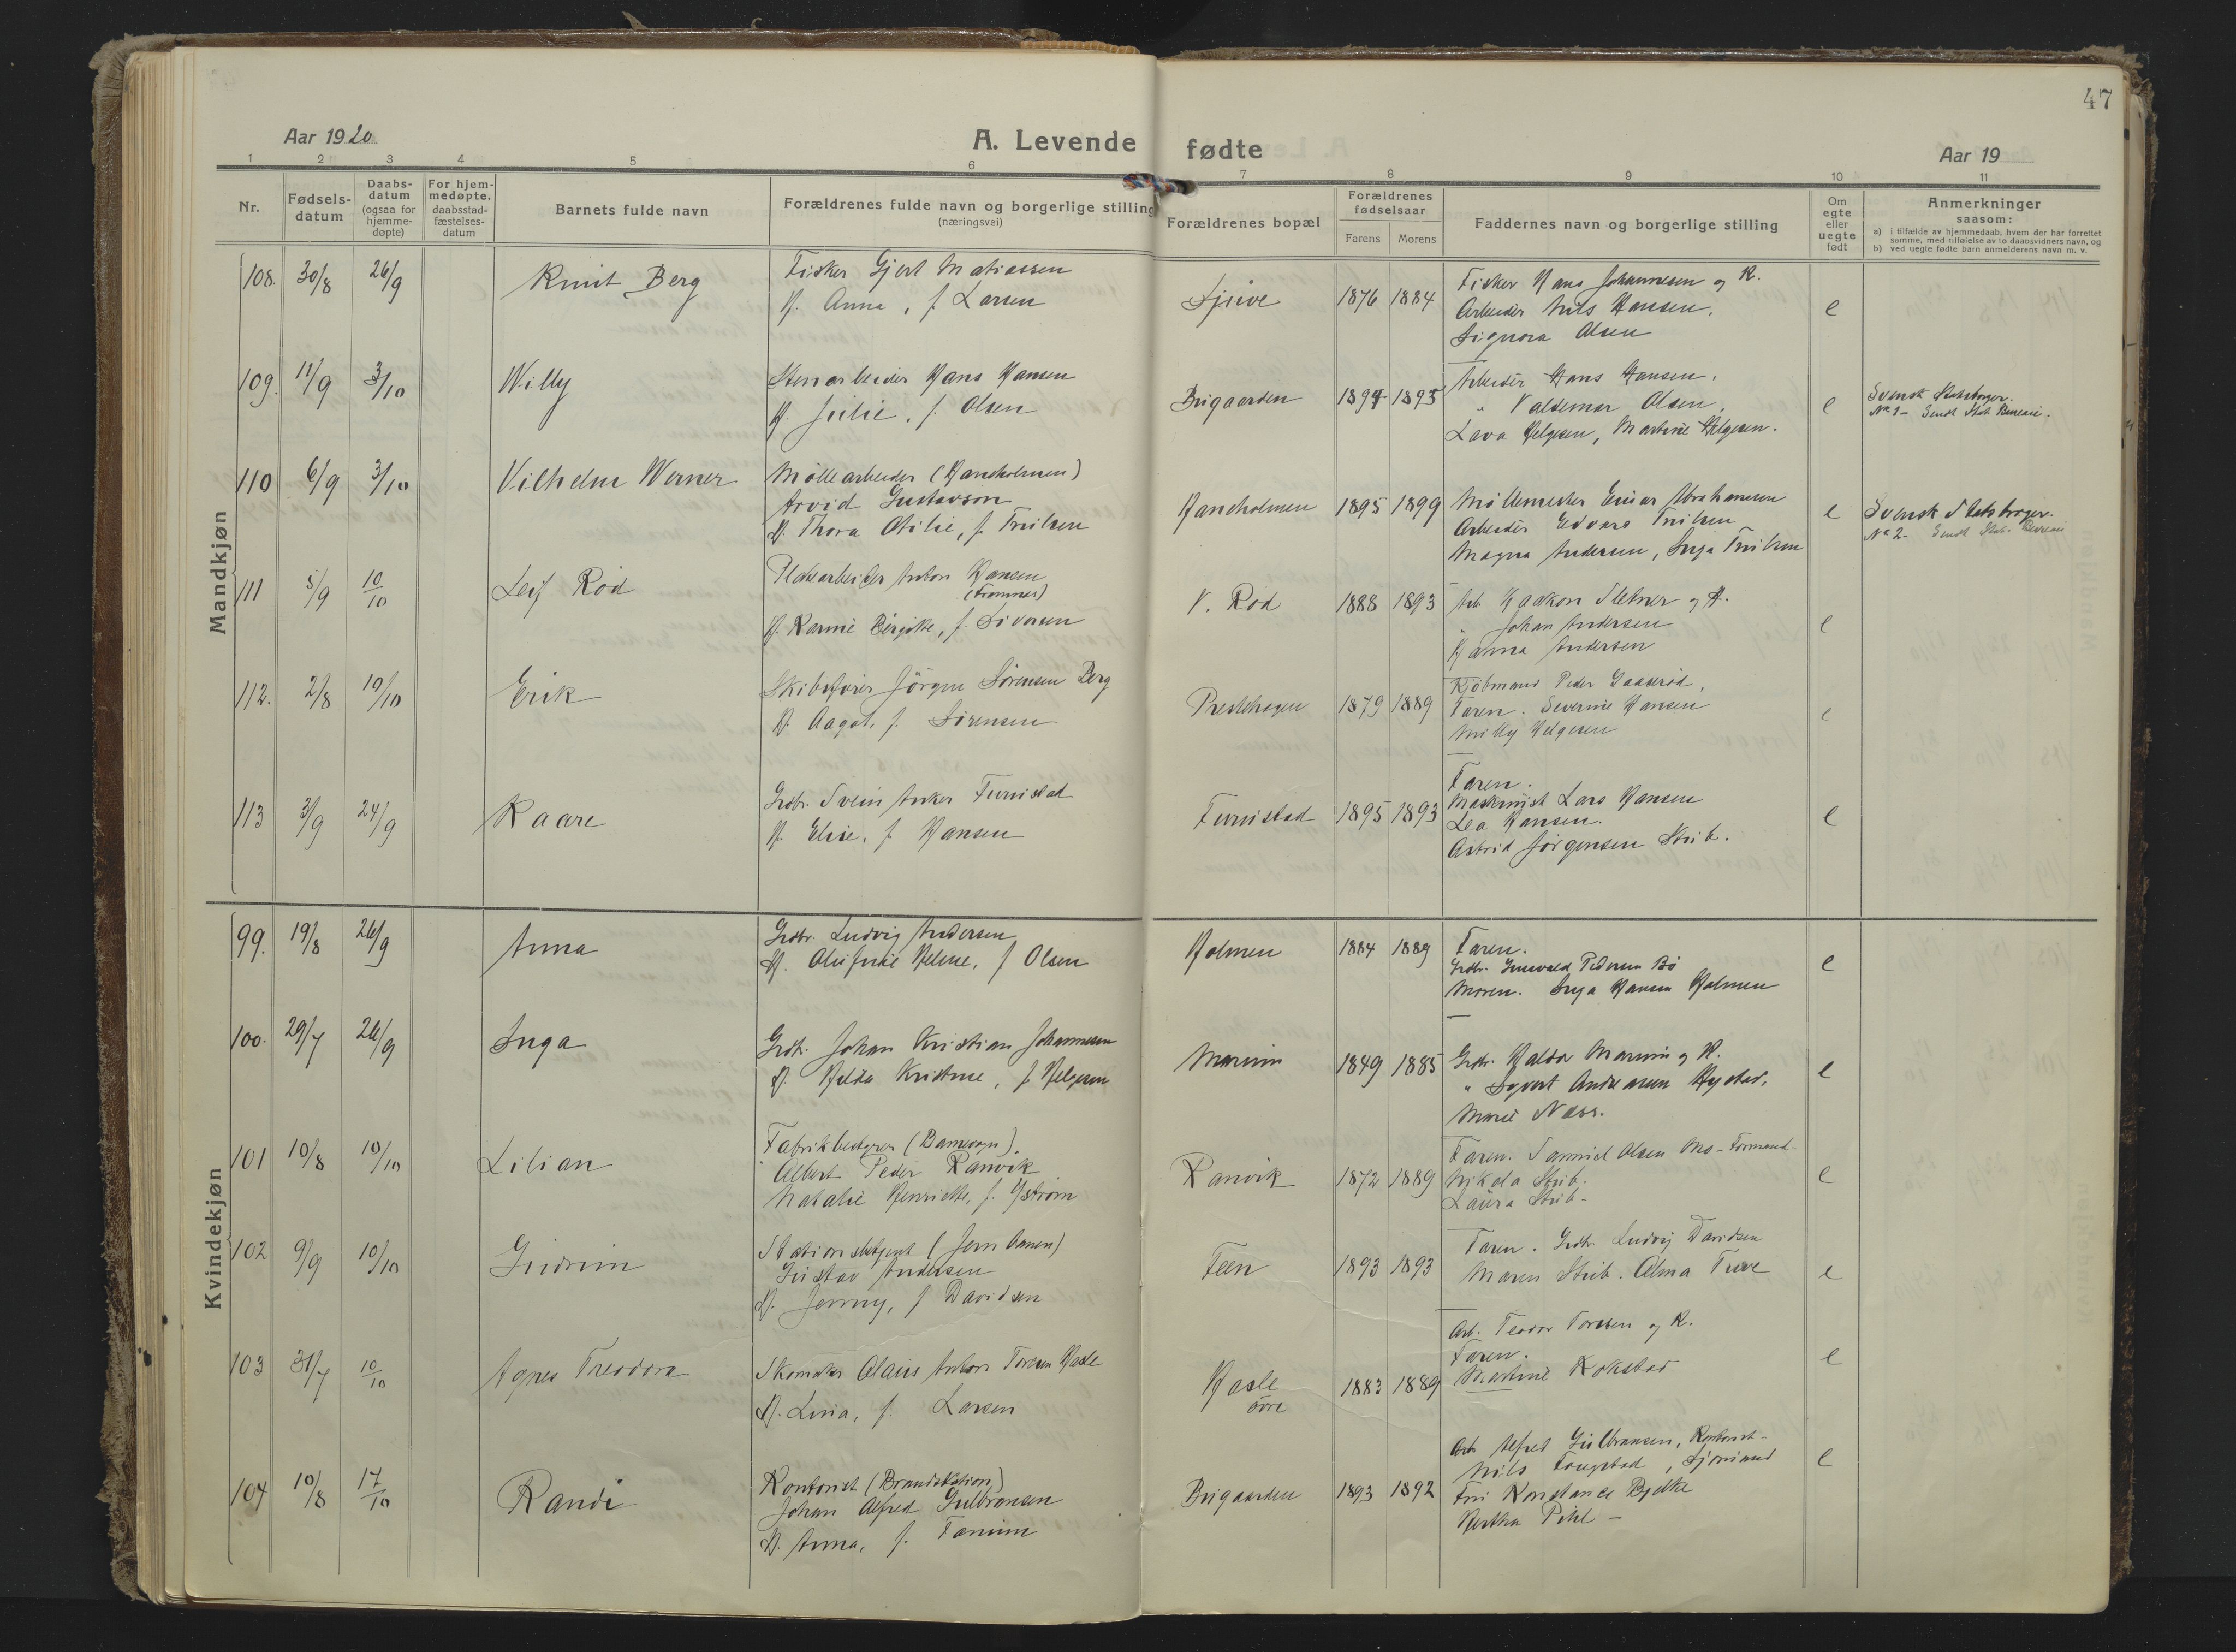 47
Aar 1920
A. Levende fødte
Aar 19
1 2 3 4 5 6 7 8 9 10 11
Nr.
Fødsels-
datum
Daabs-
datum
(ogsaa for
hjemme-
døpte)
For hjem-
medøpte,
daabsstad-
fæstelses-
datum
Barnets fulde navn
Forældrenes fulde navn og borgerlige stilling
(næringsvei)
Forældrenes bopæl
Forældrenes
fødselsaar
Farens Morens
Faddernes navn og borgerlige stilling
Om
egte
eller
uegte
født
Anmerkninger
saasom:
a) i tilfælde av hjemmedaab, hvem der har forrettet
samme, med tilføielse av to daabsvidners navn, og
b) ved uegte fødte barn anmelderens navn m. v.
Mandkjøn
108. 30/8 26/9 Knut Berg
Fisker Gjert Matiassen
H. Anna, f. Larsen
1876 1884
Fisker Hans Johannesen og K.
Arbeider Nils Hansen,
Signora Olsen
e
109. 11/9 3/10 Willy
Stenarbeider Hans Hansen
H. Julie, f. Olsen
Brigaarden 1894 1895
Arbeider Hans Hansen,
" Valdemar Olsen,
Lava Helgesen, Martine Helgesen.
e
Svensk Statsborger.
No 1 - Sendt Stat. Bureau.
110 6/9 3/10 Vilhelm Werner
Møllearbeider (Hancholmen)
Arvid Gustavson
H. Thora Otilie, f. Truilsen
Hancholmen 1895 1899
Møllemester Einar Abrahamsen
Arbeider Edvard Truilsen
Magna Andersen, Inga Truilsen
e
Svensk Statsborger.
No 2 - Sendt Stat. Bureau
111 5/9 10/10 Leif Rød
Platearbeider Anton Hansen
H. Karine Birgitte, f. Siversen
V. Rød 1888 1893
Arb. Haakon Stebner og H.
" Johan Andersen
Hanna Andersen
e
112. 2/8 10/10 Erik
Skibsfører Jørgen Sørensen Berg
H. Aagot, f. Sørensen
Prestehagen 1879 1889
Kjøbmand Peder Gaaserød,
Faren. Severine Hansen
Milly Helgesen
e
113 3/9 24/9 Kaare
Grdbr. Svein Anker Furustad
H. Elise, f. Hansen
Furustad 1895 1893
Faren.
Maskinist Lars Hansen
Lea Hansen.
Astrid Jørgensen Strib.
e
Kvindekjøn
99. 19/8 26/9 Anna
Grdbr. Ludvig Andersen
H. Olufine Helene, f. Olsen
Holmen 1884 1889
Faren.
Grdbr. Grunvald Pedersen Bø
Moren. Inga Hansen Holmen
e
100. 29/7 26/9 Inga
Grdbr. Johan Kristian Johannesen
H. Hilda Kristine, f. Helgesen
Marum 1849 1885
Grdbr. Haldor Marum og K.
" Sigvart Andreassen Hystad,
Marie Næss.
e
101 10/8 10/10 Lilian
Fabrikbestyrer (Barnevogn).
Albert Peder Ranvik
Natalie Henriette, f. Ystrøm
Ranvik 1872 1889
Faren. Samuel Olsen Mo - Formand -
Nikola Strib.
Laura Strib -
e
102 9/9 10/10 Gudrun
Stationsbetjent (Jernbanen)
Gustav Andersen
H. Jenny, f. Davidsen
Feen 1893 1893
Faren. Grdbr. Ludvig Davidsen
Maren Strib. Alma Tuve
e
103 31/7 10/10 Agnes Theodora
Skomaker Olaus Anton Toresen Hasle
H. Lina, f. Larsen
Hasle
øvre
1883 1889
Arb. Teodor Toresen og K.
Faren.
Martine Kokstad
e
104 10/8 17/10 Randi
Kontorist (Brandstation)
Johan Alfred Gulbransen
H. Anna, f. Tanum
Brigaarden 1893 1892
Arb. Alfred Gulbransen, Kontorist -
Nils Tougstad, Sjømand
Fru Konstance Bjelke
Hertha Pihl -
e